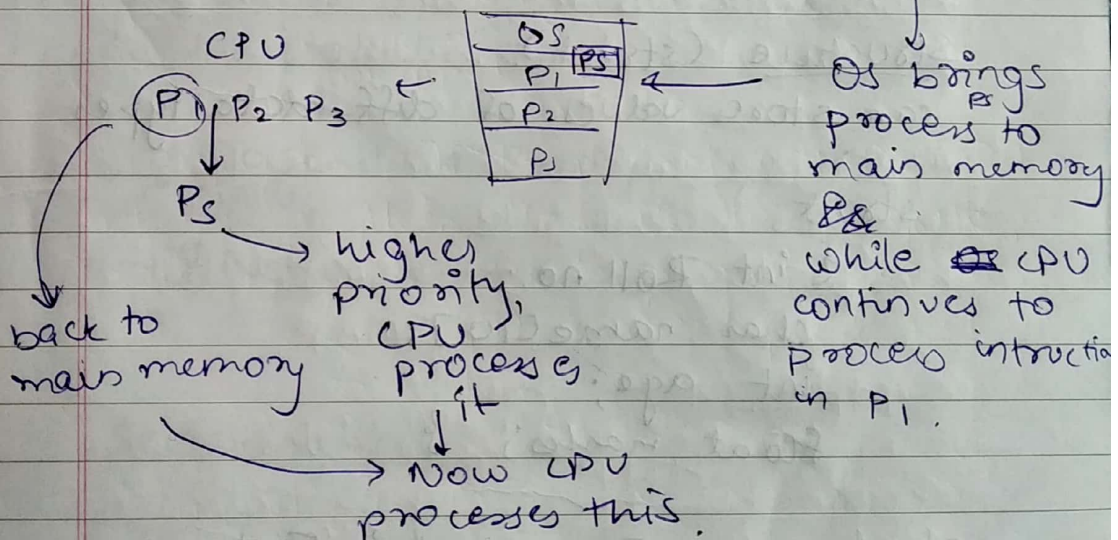 CPU
P1 P2 P3
PS
higher
priority,
CPU
processes
it
back to
main memory
Now CPU
processes this.
OS
P1 PS
P2
OS brings
PS
process to
main memory
while CPU
continues to
process intructio
in P1.